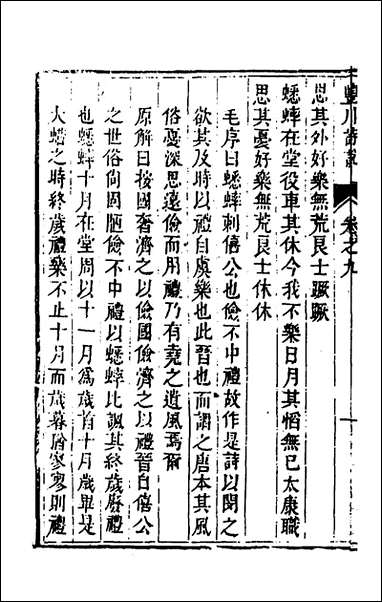 豐川詩說 卷之九
思其外好樂無荒良士蹶蹶
蟋蟀在堂役車其休今我不樂日月其慆無已太康職
思其憂好樂無荒良士休休
毛序曰蟋蟀刺僖公也儉不中禮故作是詩以閔之
欲其及時以禮自虞樂也此晉也而謂之唐本其風
俗憂深思遠儉而用禮乃有堯之遺風焉爾
原解曰按國奢濟之以儉國儉濟之以禮晉自僖公
之世俗尚固陋儉不中禮以蟋蟀比諷其終歲廢禮
也蟋蟀十月在堂周以十一月為歲首十月歲畢是
大蜡之時終歲禮樂不止十月而歲暮猶寥寥則禮